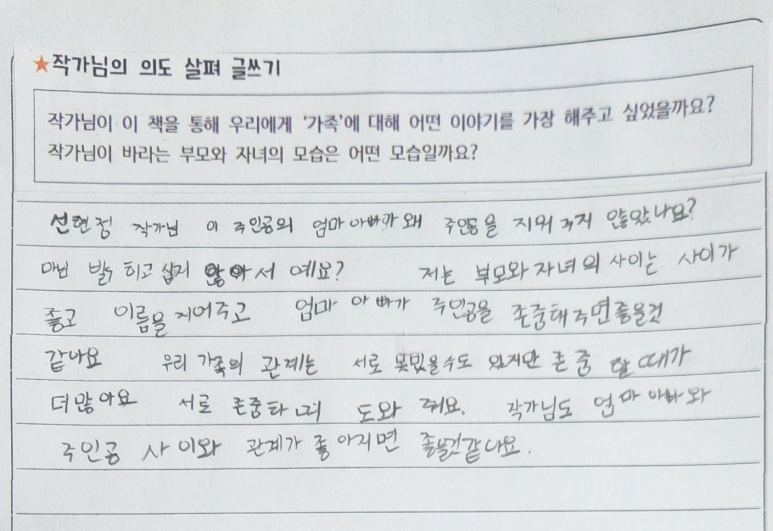 ★작가님의 의도 살펴 글쓰기
작가님이 이 책을 통해 우리에게 '가족'에 대해 어떤 이야기를 가장 해주고 싶었을까요?
작가님이 바라는 부모와 자녀의 모습은 어떤 모습일까요?
선현정 작가님 이 주인공의 엄마 아빠가 왜 주인공을 지워 주지 않았나요?
발 히고 싶지 않아서 예요? 저는 부모와 자녀의 사이는 사이가
좋고 이름을 지어주고 엄마 아빠가 주인공을 존중해주면 좋을것
같나요 우리 가족의 관계는 서로 못믿을수도 있지만 존중 할 때가
더많아요 서로 존중하며 도와 줘요. 작가님도 엄마 아빠와
주인공 사이와 관계가 좋아지면 좋을것같나요.